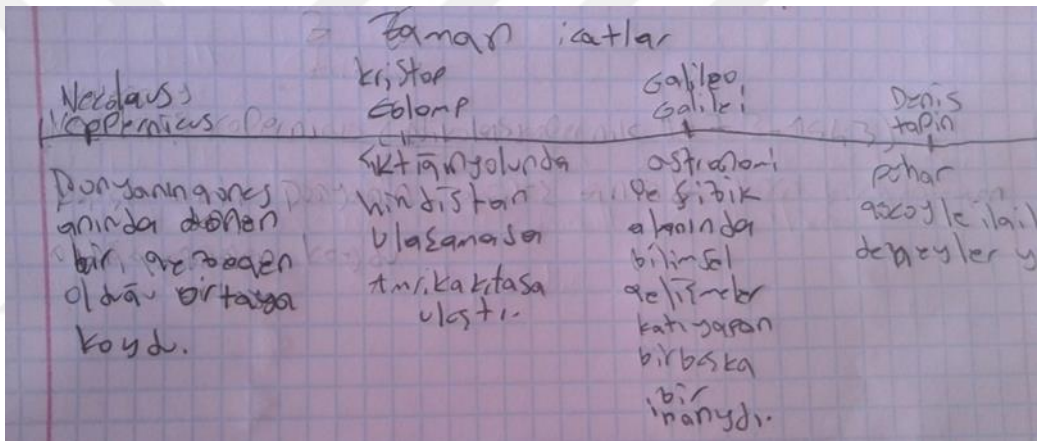 Zaman icatlar
Nekolaus
Koppernicus
Dünyanın güneş
anında dönen
bir gezegen
olduğu ortaya
koydu.
kristop
Colomp
çıktığın yolunda
hindistan
Ulaşamasa
Amrika kıtasa
ulaştı.
Galileo
Galilei
astronomi
ve fizik
alanında
bilimsel
gelişmeler
katı yapan
bir başka
bir
inanydı.
Denis
papin
puhar
deneyler y